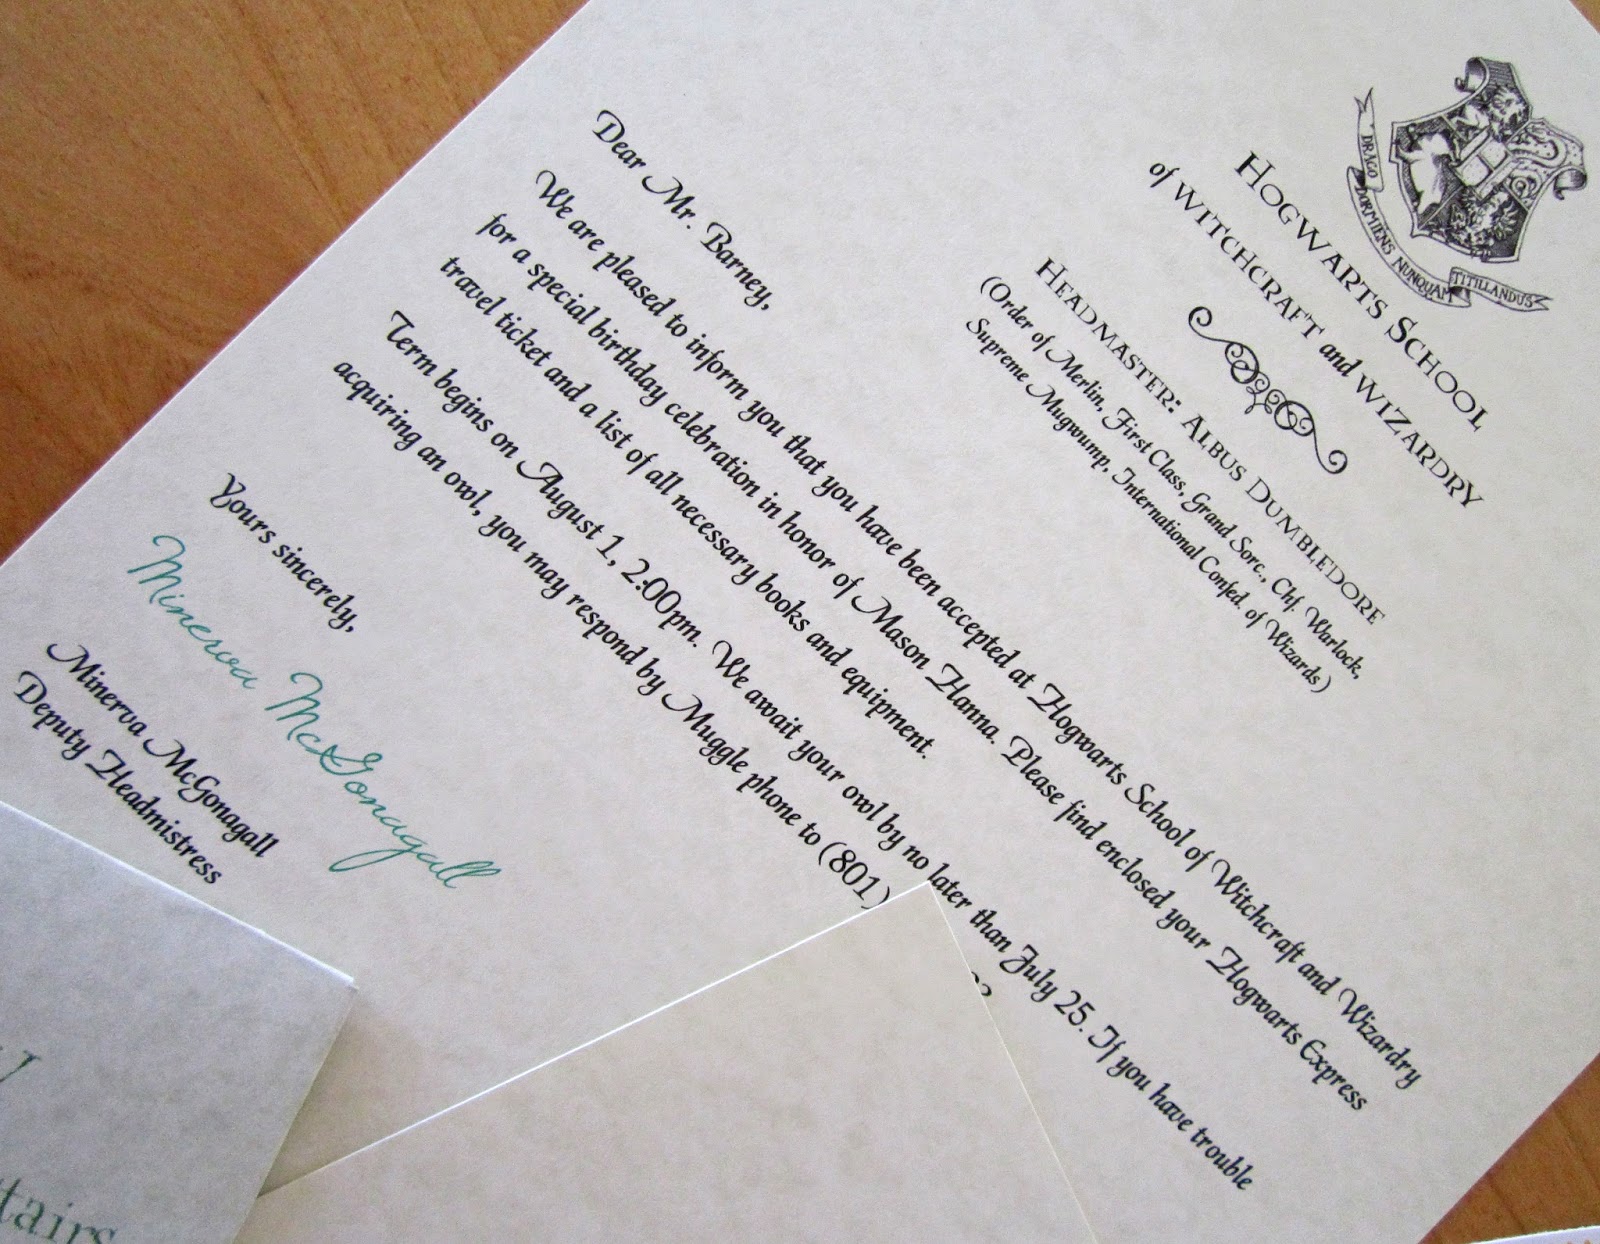 DRACO DORMIENS NUNQUAM TITILLANDUS
HOGWARTS SCHOOL
of WITCHCRAFT and WIZARDRY
HEADMASTER: ALBUS DUMBLEDORE
(Order of Merlin, First Class, Grand Sorc., Chf. Warlock,
Supreme Mugwump, International Confed. of Wizards)
Dear Mr. Barney,
We are pleased to inform you that you have been accepted at Hogwarts School of Witchcraft and Wizardry
for a special birthday celebration in honor of Mason Hanna. Please find enclosed your Hogwarts Express
travel ticket and a list of all necessary books and equipment.
Term begins on August 1, 2:00pm. We await your owl by no later than July 25. If you have trouble
acquiring an owl, you may respond by Muggle phone to (801)
Yours sincerely,
Minerva McGonagall
Minerva McGonagall
Deputy Headmistress